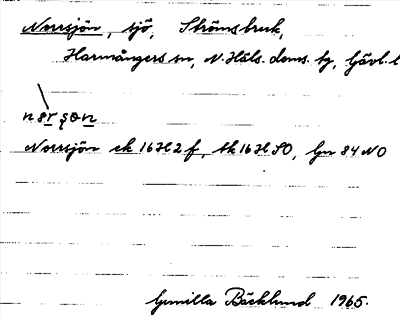 Norrsjön, sjö, Strömsbruk,
Harmångers sn, N. Häls. doms. tg, Gävl. l
Norrsjön ek 16H2f, tk 16H SO, Gn 84 NO
Gunilla Bäcklund 1965.